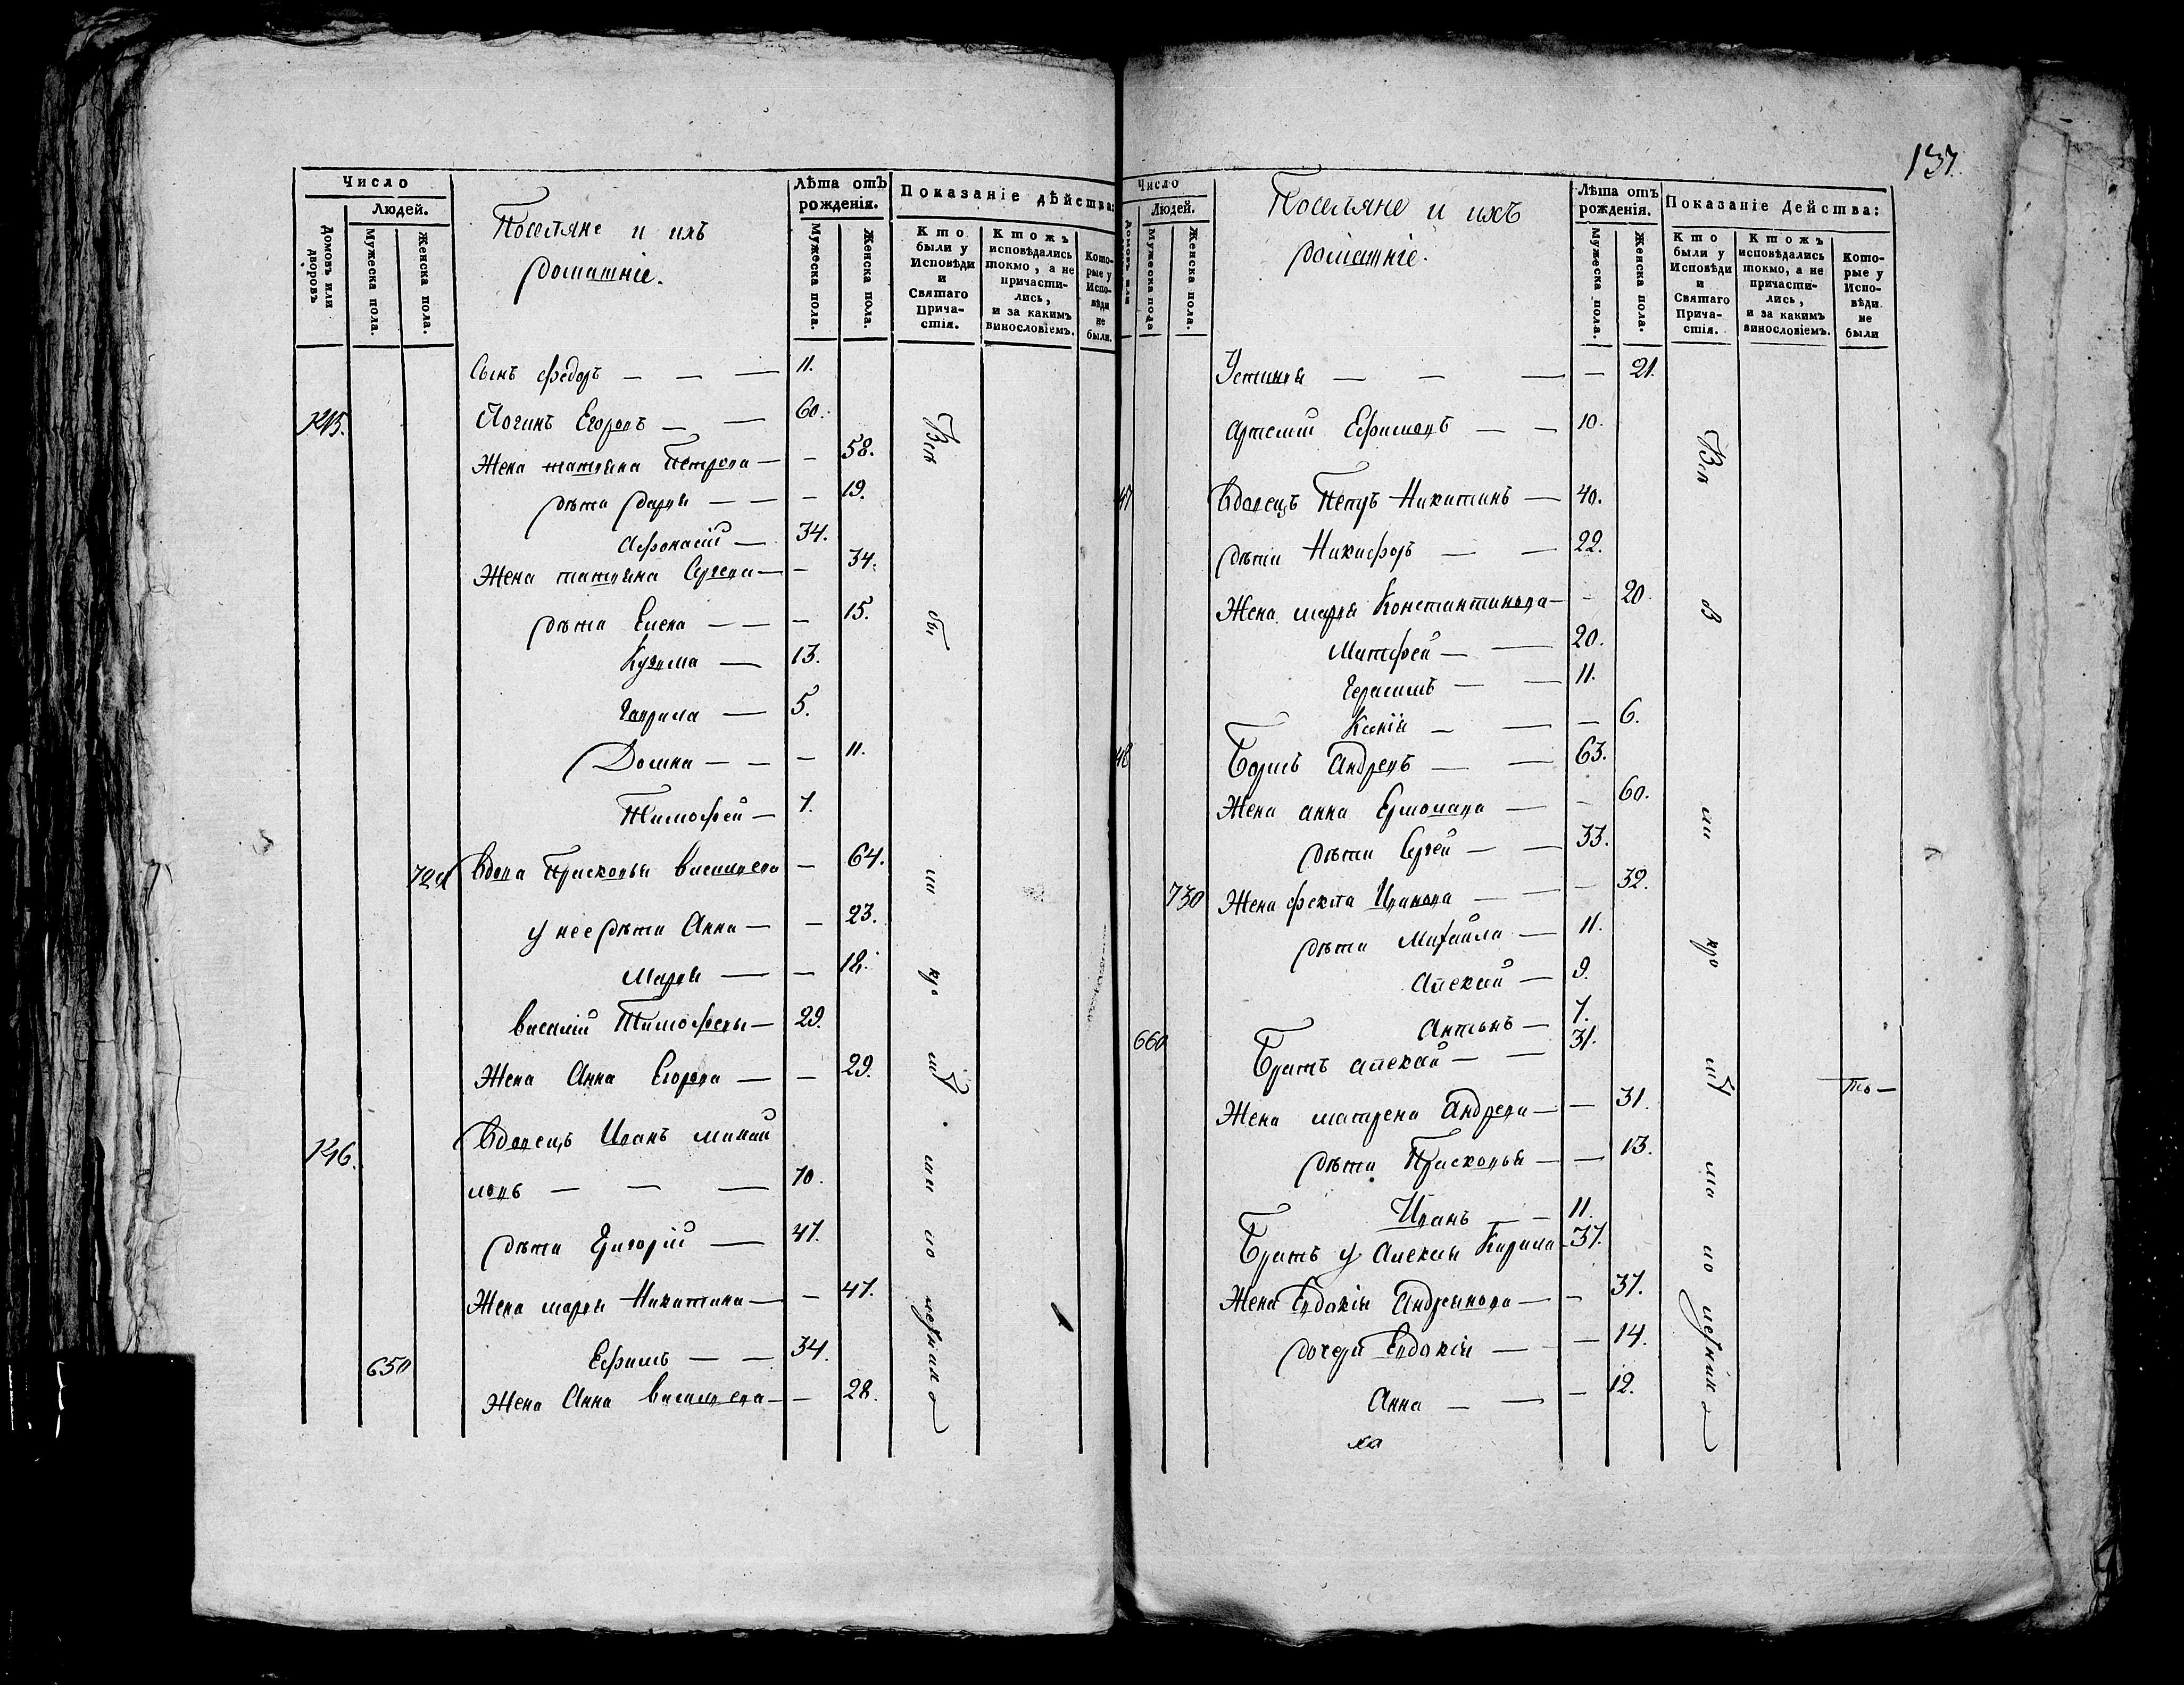 Число
Людей.
Домовъ или дворовъ
Мужеска пола.
Женска пола.
Поселяне и ихъ
домашніе.
Лѣта отъ рожденія.
Мужеска пола.
Женска пола.
Показаніе дѣйства:
Кто были у Исповѣди и Святаго Прича-стія.
Ктожъ исповѣдались токмо, а не причасти-лись, и за какимъ винословіемъ.
Кото-рые у Испо-вѣди не были.
Сынъ Федоръ — — — 11.
Логинъ Егоровъ — — 60.
Жена татьяна Петрова — — 58.
дѣти Дарья — — — 19.
Афонасій — 34.
Жена татьяна Сергеева — — 34.
дѣти Елена — — — 15.
Кузьма — 13.
Гаврила — 5.
Домна — — — 11.
Тимофей — 1.
Вдова Прасковья васильева — 64.
у нее дѣти Анна — — 23.
Марья — — 12.
василій Тимофеевъ — 29.
Жена Анна Егорова — — 29.
146. Вдовецъ Иванъ михай
ловъ — — — 70.
дѣти Григорій — 47.
Жена марья Никитина — — 47.
650 Ефимъ — — 34.
Жена Анна васильева — — 28.
137.
Число
Людей.
Мужеска пола
Женска пола.
Поселяне и ихъ
домашніе.
Лѣта отъ рожденія.
Мужеска пола.
Женска пола.
Показаніе Действа:
Кто были у Исповѣди и Святаго Прича-стія.
Ктожъ исповѣдались токмо, а не причасти-лись, и за какимъ винословіемъ.
Кото-рые у Испо-вѣди не были
Устинья — — — — 21.
Артемій Ефимовъ — — 10.
47 Вдовецъ Петръ Никитинъ — 40.
дѣти Никифоръ — — 22.
Жена марья Константинова — — 20.
Матфей — — 20.
Герасимъ — — 11.
Ксенія — — — 6.
48 Борисъ Андреевъ — — 63.
Жена анна Ермолаева — — 60.
дѣти Сергей — — 33.
730 Жена фекла Иванова — — 32.
дѣти Михайла — 11.
Алексей — 9.
Антонъ — 7.
660 Братъ алексей — — 31.
Жена матрена Андреева — — 31.
дѣти Прасковья — — 13.
Иванъ — — 11.
Братъ у Алексея Кирила — 37.
Жена Евдокія Андреянова — — 37.
дочери Евдокія — — 14.
Анна — — — 12.